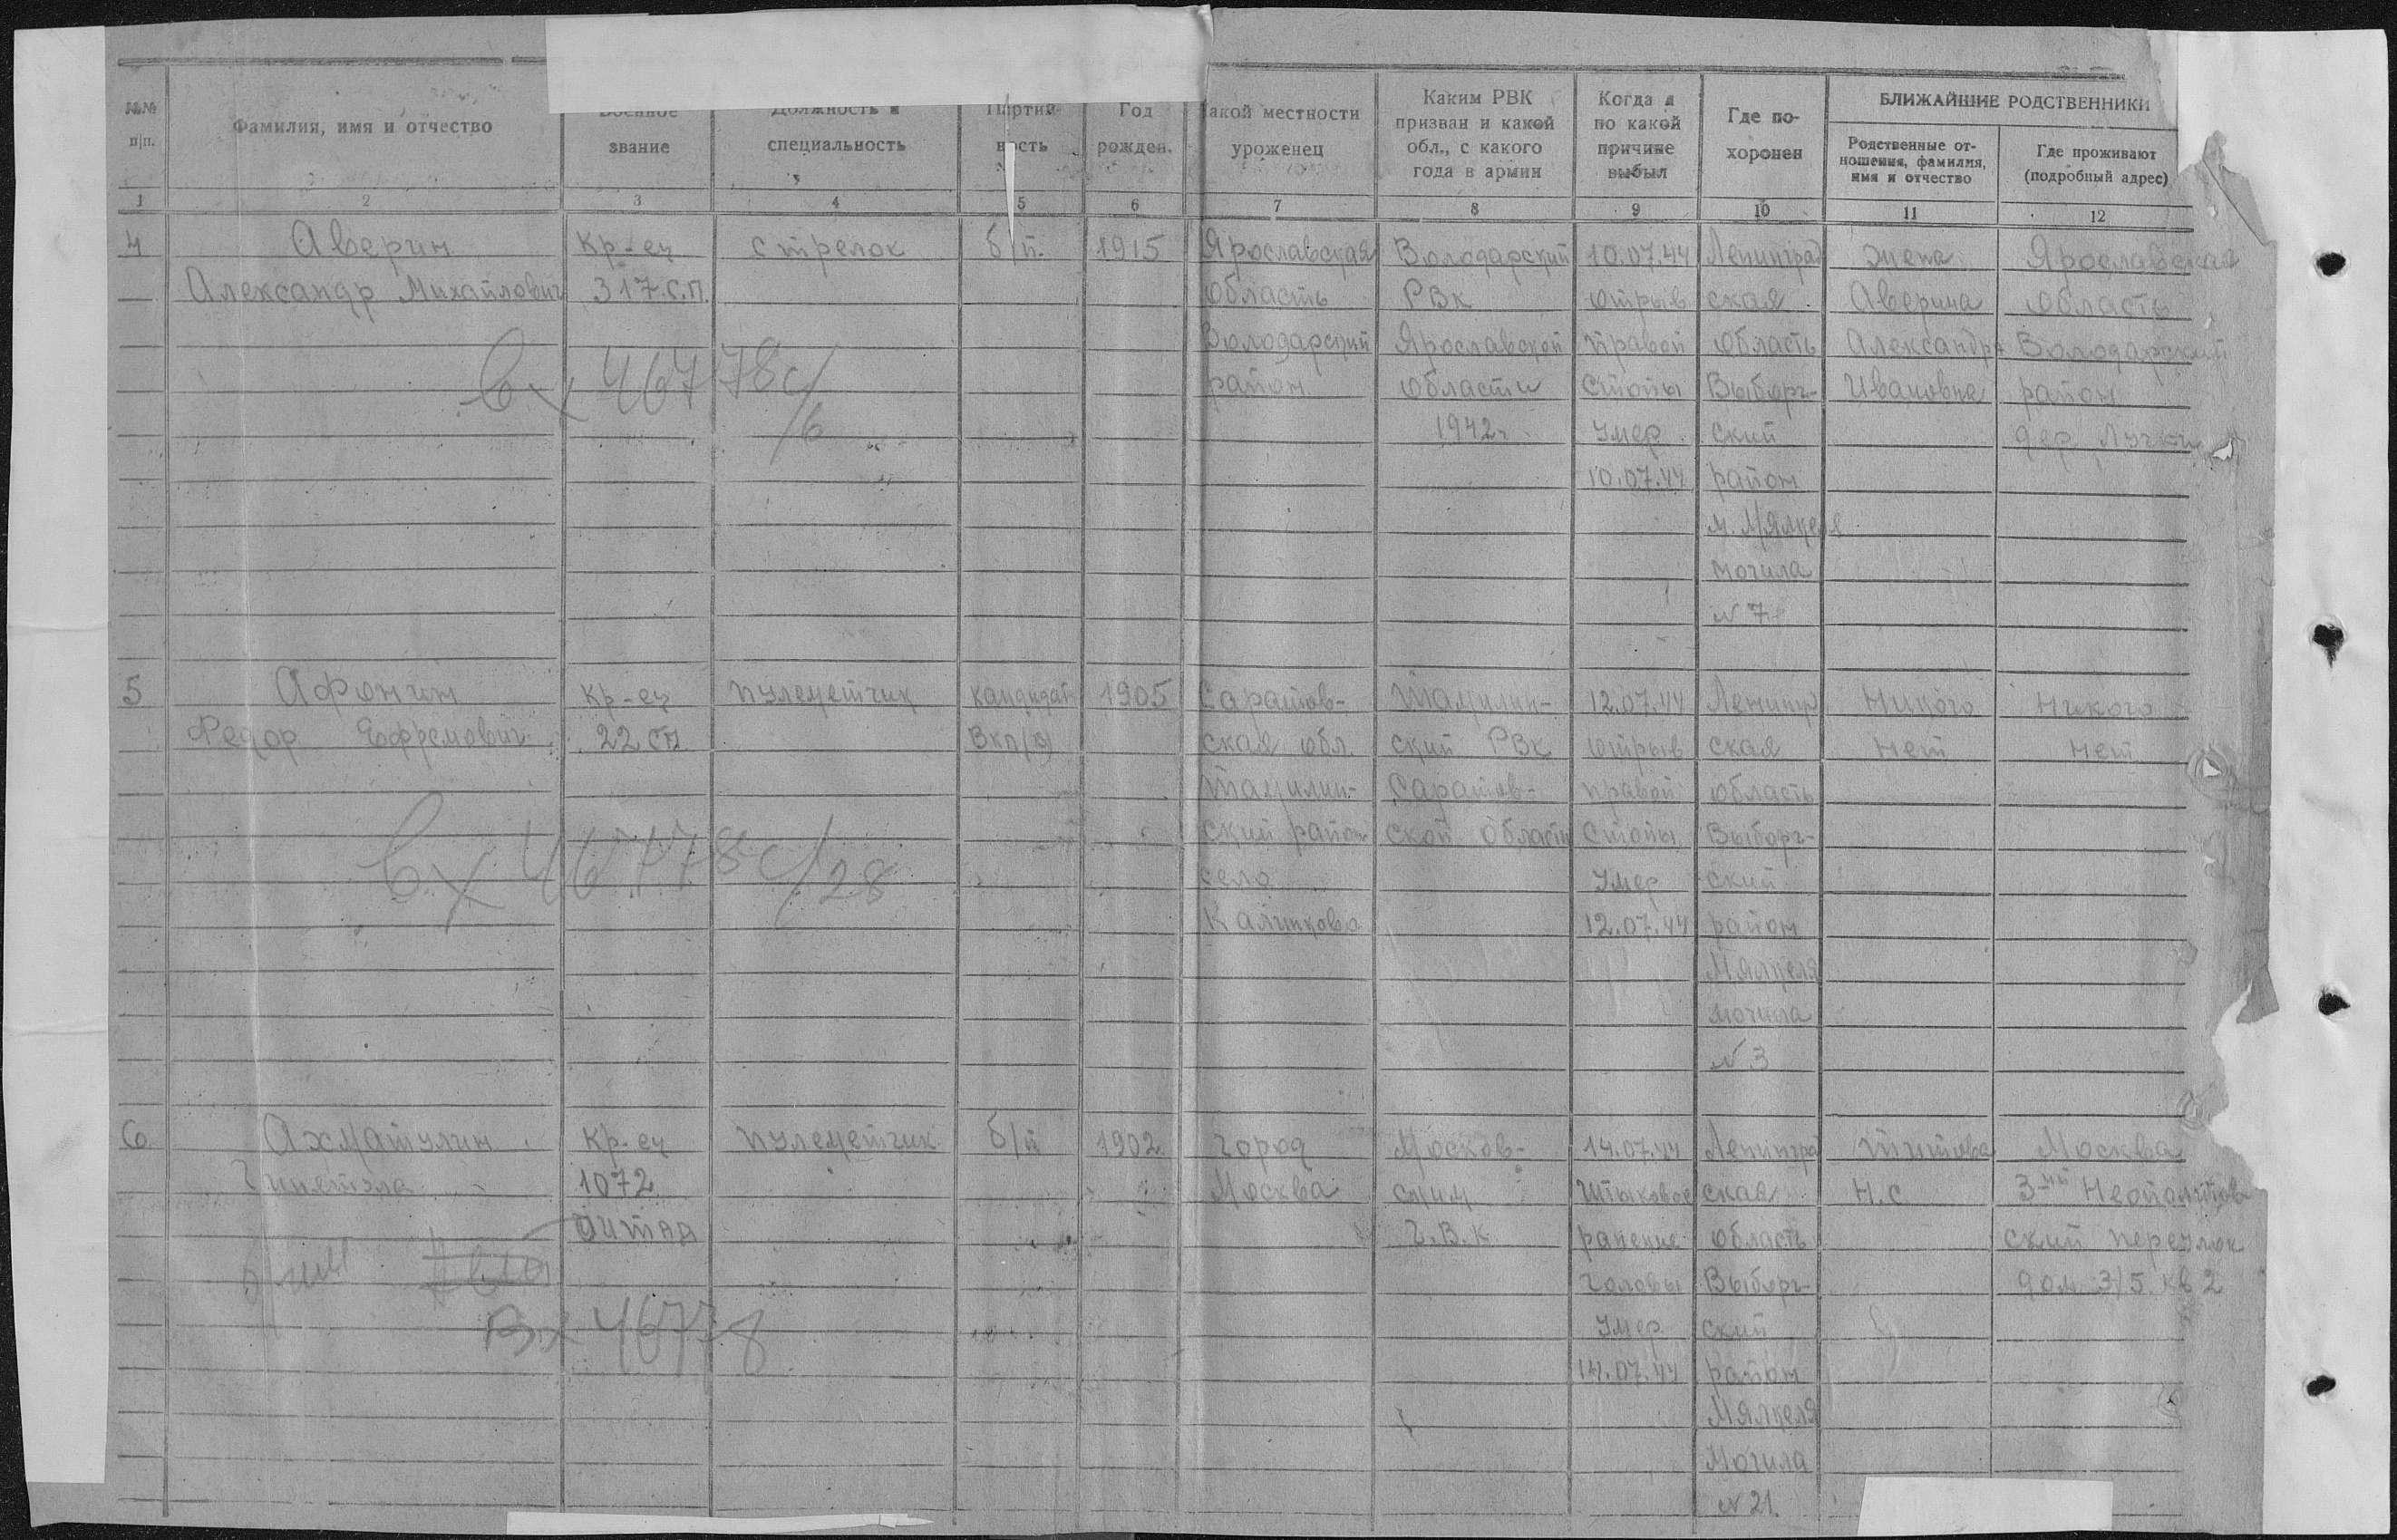 №№ п|п.
Фамилия, имя и отчество
Военное звание
Должность и специальность
Партийность
Год рожден.
акой местности уроженец
Каким РВК призван и какой обл., с какого года в армии
Когда и по какой причине выбыл
Где похоронен
БЛИЖАЙШИЕ РОДСТВЕННИКИ
Родственные отношения, фамилия, имя и отчество
Где проживают (подробный адрес)
1 2 3 4 5 6 7 8 9 10 11 12
4 Аверин Кр-ец стрелок б/п. 1915 Ярославская Володарский 10.07.44 Ленинград жена Ярославская
Александр Михайлович 317 с.п. область РВК отрыв ская Аверина область
Володарский Ярославской правой область Александра Володарский
вх 46778с/6
район области стопы Выборг- Ивановна район
1942г. умер ский дер
10.07.44 район
м. Мялкеля
могила
№ 7
5 Афонин Кр-ец пулеметчик кандидат 1905 Саратов- 12.07.44 Ленингр Никого Никого
Федор Ефремович 22 сп ВКП(б) ская обл. ский РВК отрыв ская нет нет
Саратов- правой область
ский район ской области стопы Выборг-
вх 46778с/28
село умер ский
12.07.44 район
Мялкеля
могила
№ 3
6 Ахматулин Кр-ец пулеметчик б/п 1902 город Москов- 14.07.44 Ленинград Москва
1072 Москва ским штыковое ская Н.С 3ий
Г.В.К ранение область ский переулок
головы Выборг- дом 3/5 кв 2
Вх 46778
умер ский
14.07.44 район
Мялкеля
Могила
№ 21